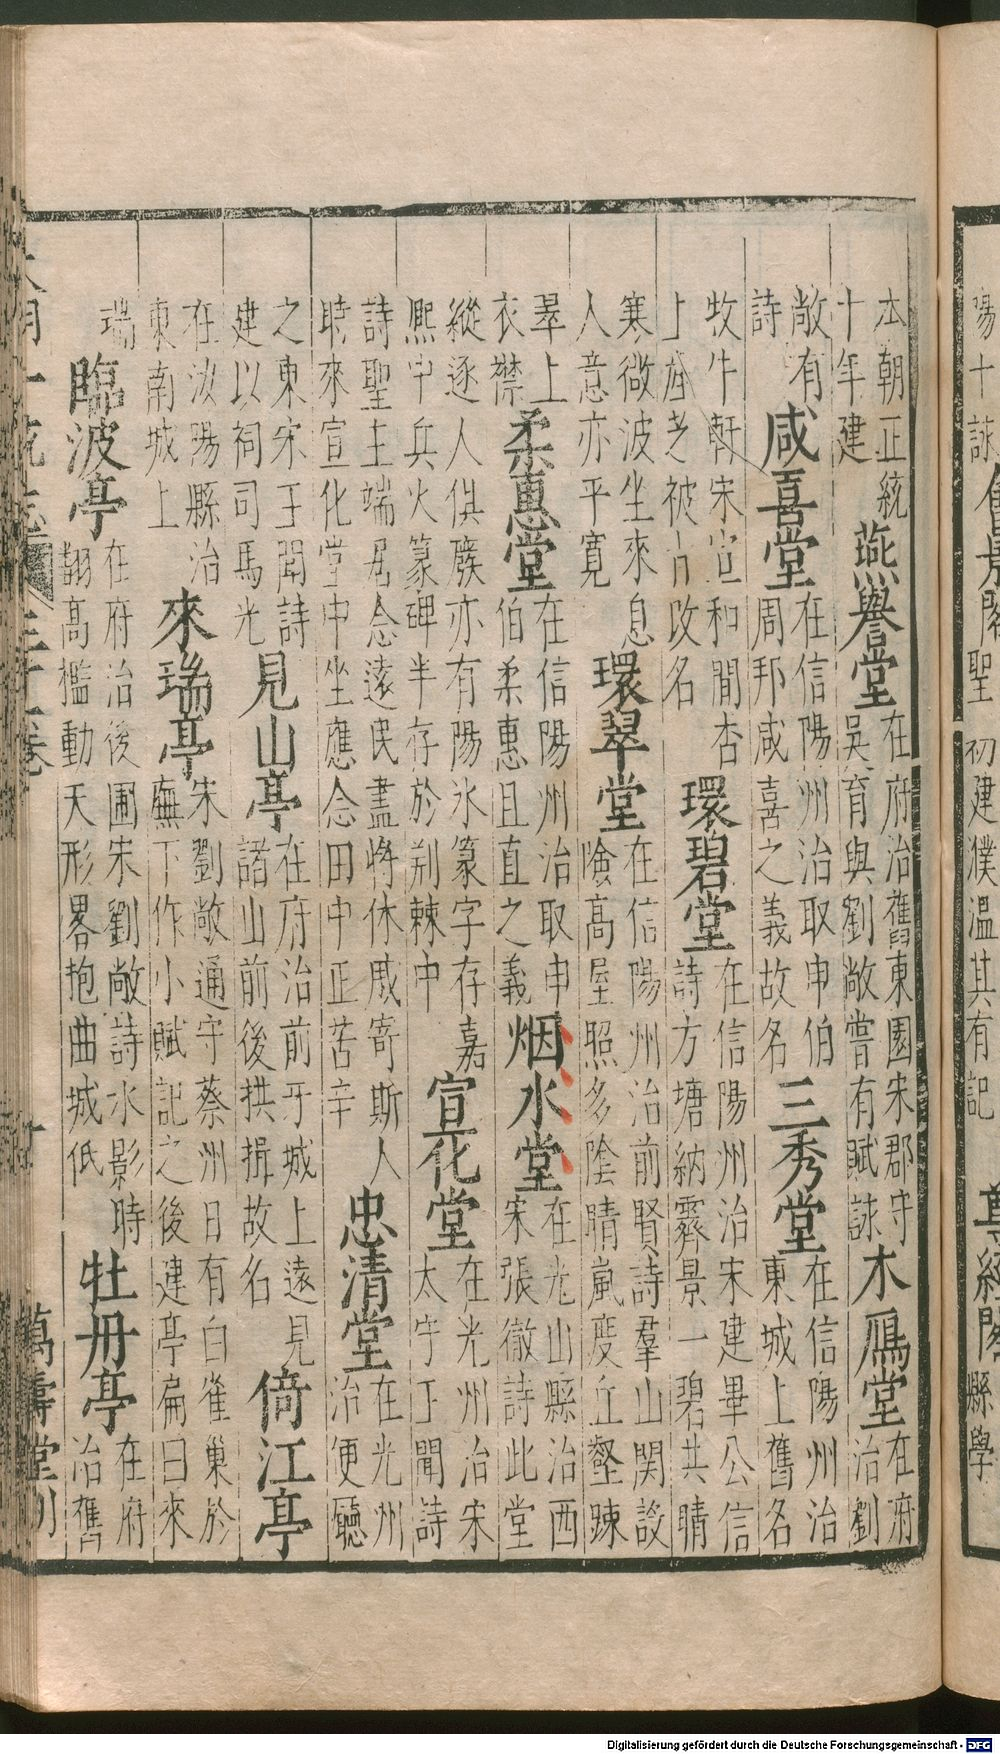 陽十詠 舊景閣 聖初建濮溫其有記 尊經閣 縣學
本朝正統十年建 燕譽堂 在府治舊東園宋郡守吳育與劉敞嘗有賦詠 木鴈堂 在府治劉
敞有詩 咸喜堂 在信陽州治取申伯周邦咸喜之義故名 三秀堂 在信陽州治東城上舊名
牧牛軒宋宣和間杏上産芝被旨改名 環碧堂 在信陽州治宋建畢公信詩方塘納霽景一碧共晴
寒微波坐來息人意亦平寛 環翠堂 在信陽州治前賢詩羣山関設險髙屋照多隂晴嵐度丘壑踈
翠上衣襟 柔惠堂 在信陽州治取申伯柔惠且直之義 烟水堂 在光山縣治西宋張徹詩此堂
縱逐人俱廢亦有陽氷篆字存嘉熈中兵火篆碑半存於荆棘中 宣化堂 在光州治宋太守丁聞詩
詩聖主端居念遠民盡将休戚寄斯人時來宣化堂中坐應念田中正苦辛 忠清堂 在光州治便廳
之東宋丁聞詩建以祠司馬光 見山亭 在府治前牙城上遠見諸山前後拱揖故名 倚江亭
在汝陽縣治東南城上 來瑞亭 宋劉敞通守蔡州日有白雀巢於廡下作小賦記之後建亭扁曰來
瑞 臨波亭 在府治後圃宋劉敞詩水影時翻髙檻動天形畧抱曲城低 牡丹亭 在府治舊
大明一統志 三十一卷 十 萬壽堂刋
Digitalisierung gefördert durch die Deutsche Forschungsgemeinschaft - DFG